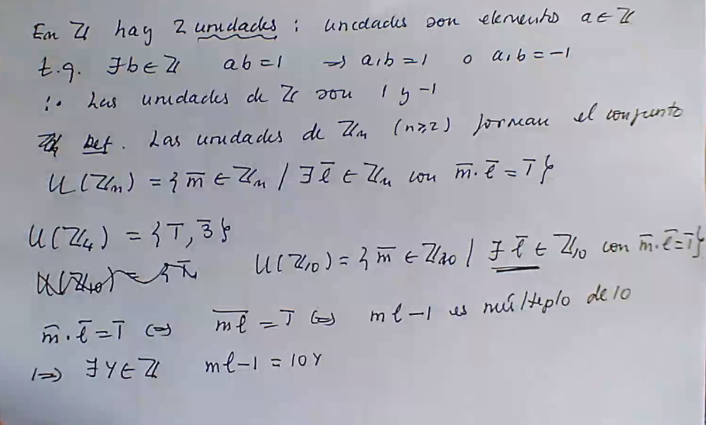 En ℤ hay 2 unidades : unidades son elementos a∈ℤ
t.q. ∃b∈ℤ ab=1 ⇒ a,b=1 o a,b=-1
∴ Las unidades de ℤ son 1 y -1
Def. Las unidades de ℤn (n≥2) forman el conjunto
U(ℤn) = {m̄ ∈ ℤn / ∃ l̄ ∈ ℤn con m̄·l̄ = 1̄}
U(ℤ4) = {1̄, 3̄}
U(ℤ10) = {m̄ ∈ ℤ10 / ∃ l̄ ∈ ℤ10 con m̄·l̄=1̄}
m̄·l̄=1̄ ⇔ m̅l̅ = 1̄ ⇔ ml-1 es múltiplo de 10
⇔ ∃ Y∈ℤ ml-1 = 10Y